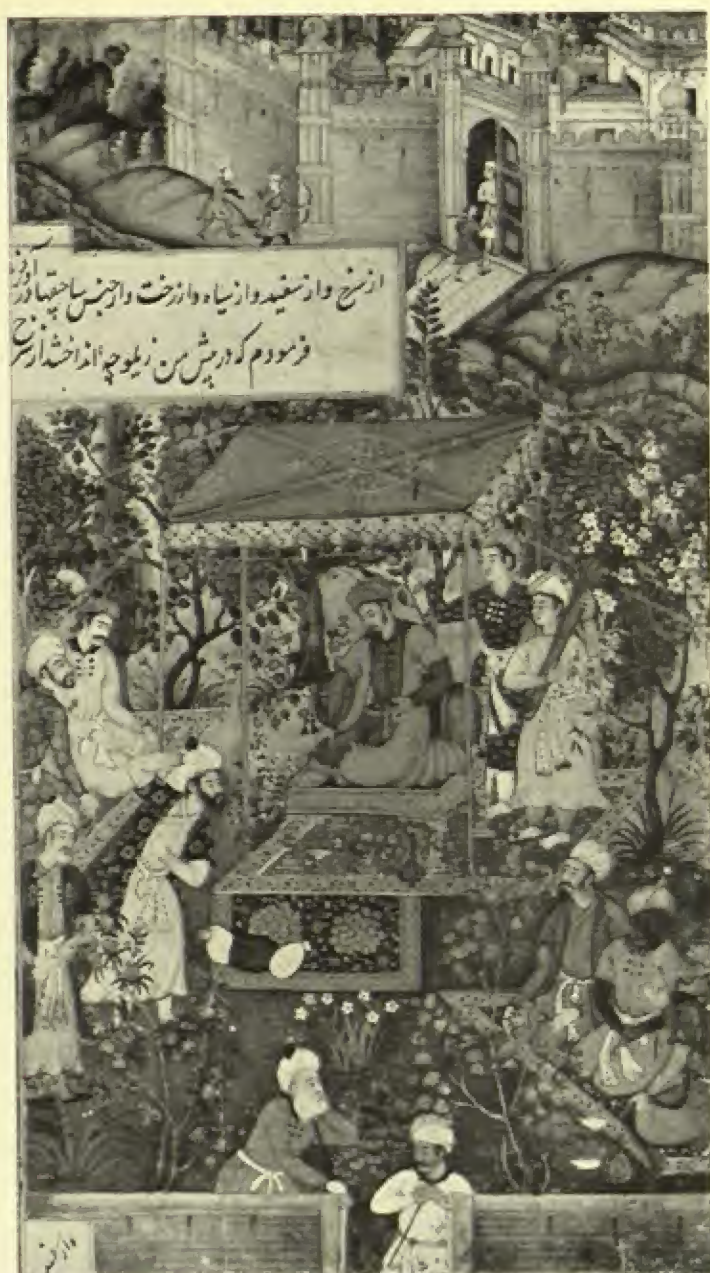 از سرخ و از سفید و از سیاه و از رخت و از جنس ساچقها آوردند
فرمودم که در پیش من زیلوچه انداختند از سرخ